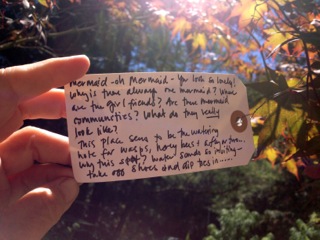 mermaid - oh mermaid - you look so lonely!
Why is there always one mermaid? Where
are the girl friends? Are there mermaid
communities? What do they really
look like?
This place seems to be the watering
hole for wasps, honey bees +
Why this spot? Water sounds so inviting -
take off shoes and dip toes in.....